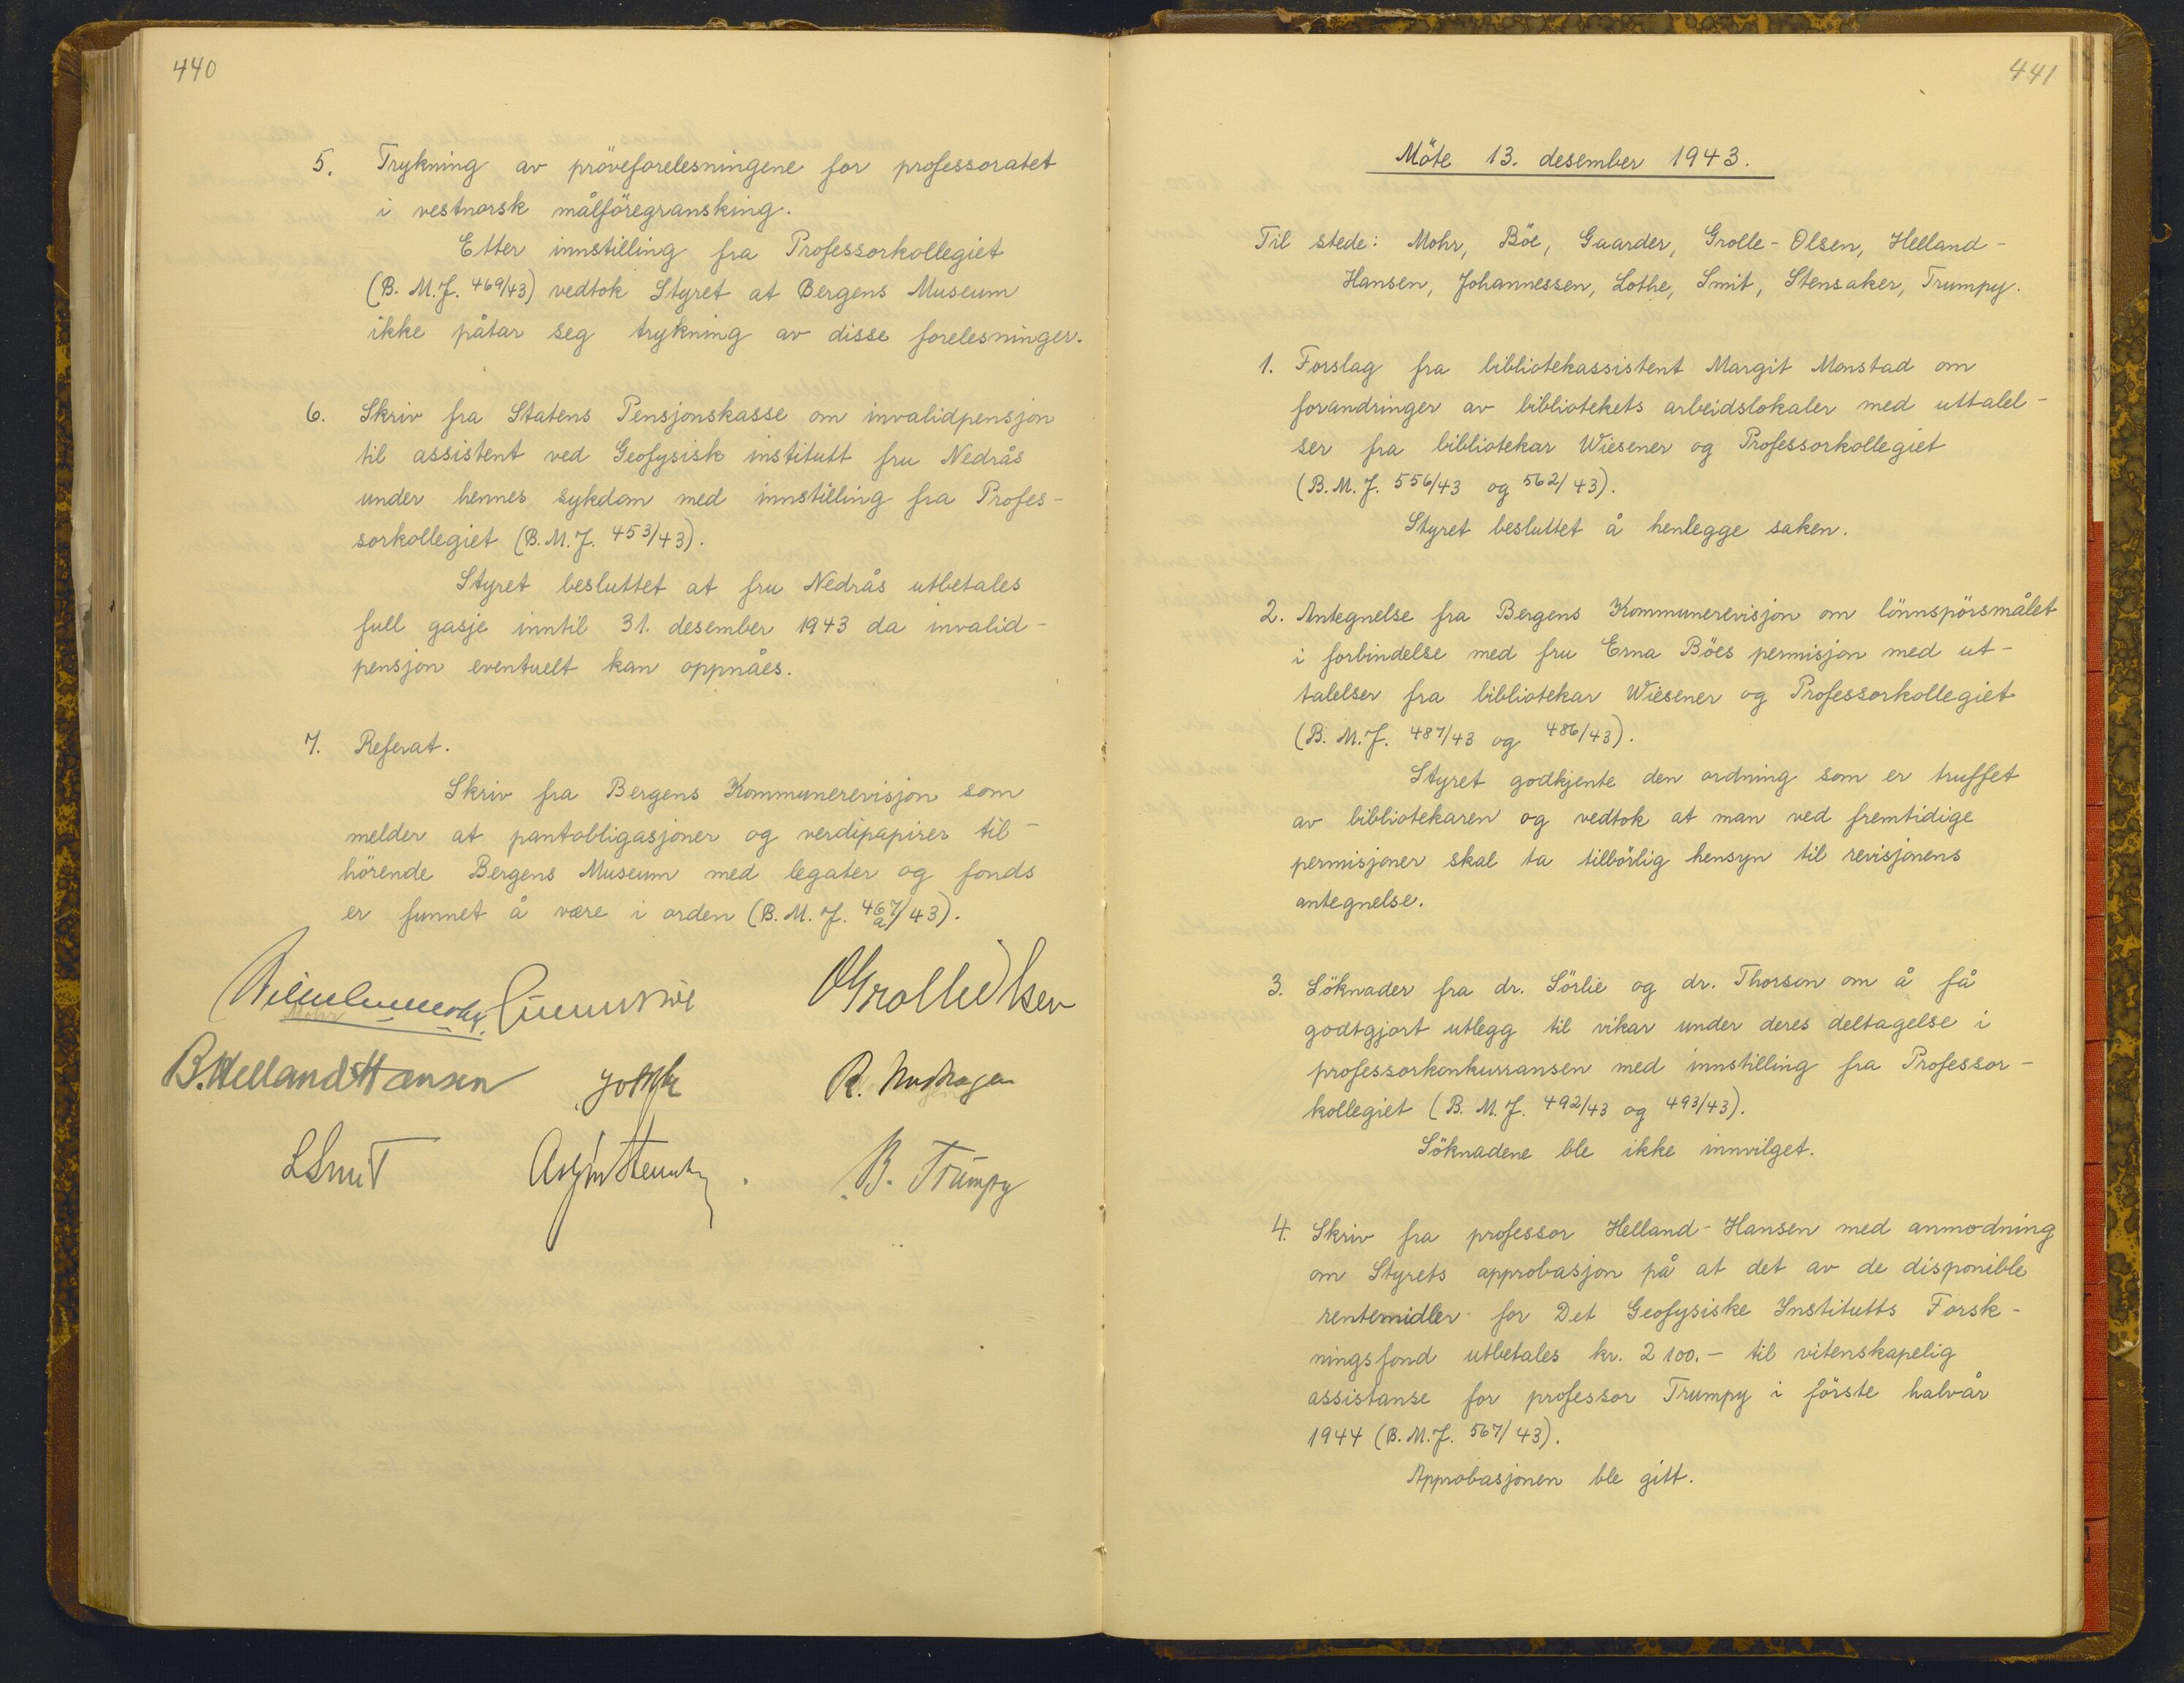 440
5. Trykning av pröveforelesningene for professoratet
i vestnorsk målföregransking.
Etter innstilling fra Professorkollegiet
(B. M. J. 469/43) vedtok Styret at Bergens Museum
ikke påtar seg trykning av disse forelesninger.
6. Skriv fra Statens Pensjonskasse om invalidpensjon
til assistent ved Geofysisk institutt fru Nedrås
under hennes sykdom med innstilling fra Profes-
sorkollegiet (B. M. J. 453/43).
Styret besluttet at fru Nedrås utbetales
full gasje inntil 31. desember 1943 da invalid-
pensjon eventuelt kan oppnåes.
7. Referat.
Skriv fra Bergens Kommunerevisjon som
melder at pantobligasjoner og verdipapirer til-
hörende Bergens Museum med legater og fonds
er funnet å være i orden (B. M. J. 467a/43).
Mohr
B. Helland Hansen
L Smit
B. Trumpy
441
Möte 13. desember 1943.
Til stede: Mohr, Böe, Gaarder, Grolle-Olsen, Helland-
Hansen, Johannessen, Lothe, Smit, Stensaker, Trumpy.
1. Forslag fra bibliotekassistent Margit Monstad om
forandringer av bibliotekets arbeidslokaler med uttalel-
ser fra bibliotekar Wiesener og Professorkollegiet
(B. M. J. 556/43 og 562/43).
Styret besluttet å henlegge saken.
2. Antegnelse fra Bergens Kommunerevisjon om lönnspörsmålet
i forbindelse med fru Erna Böes permisjon med ut-
talelser fra bibliotekar Wiesener og Professorkollegiet
(B. M. J. 487/43 og 486/43).
Styret godkjente den ordning som er truffet
av bibliotekaren og vedtok at man ved fremtidige
permisjoner skal ta tilbörlig hensyn til revisjonens
antegnelse.
3. Söknader fra dr. Sörlie og dr. Thorson om å få
godtgjort utlegg til vikar under deres deltagelse i
professorkonkurransen med innstilling fra Professor-
kollegiet (B. M. J. 492/43 og 493/43).
Söknadene ble ikke innvilget.
4. Skriv fra professor Helland-Hansen med anmodning
om Styrets approbasjon på at det av de disponible
rentemidler for Det Geofysiske Institutts Forsk-
ningsfond utbetales kr. 2100.- til vitenskapelig
assistanse for professor Trumpy i förste halvår
1944 (B. M. J. 567/43).
Approbasjonen ble gitt.